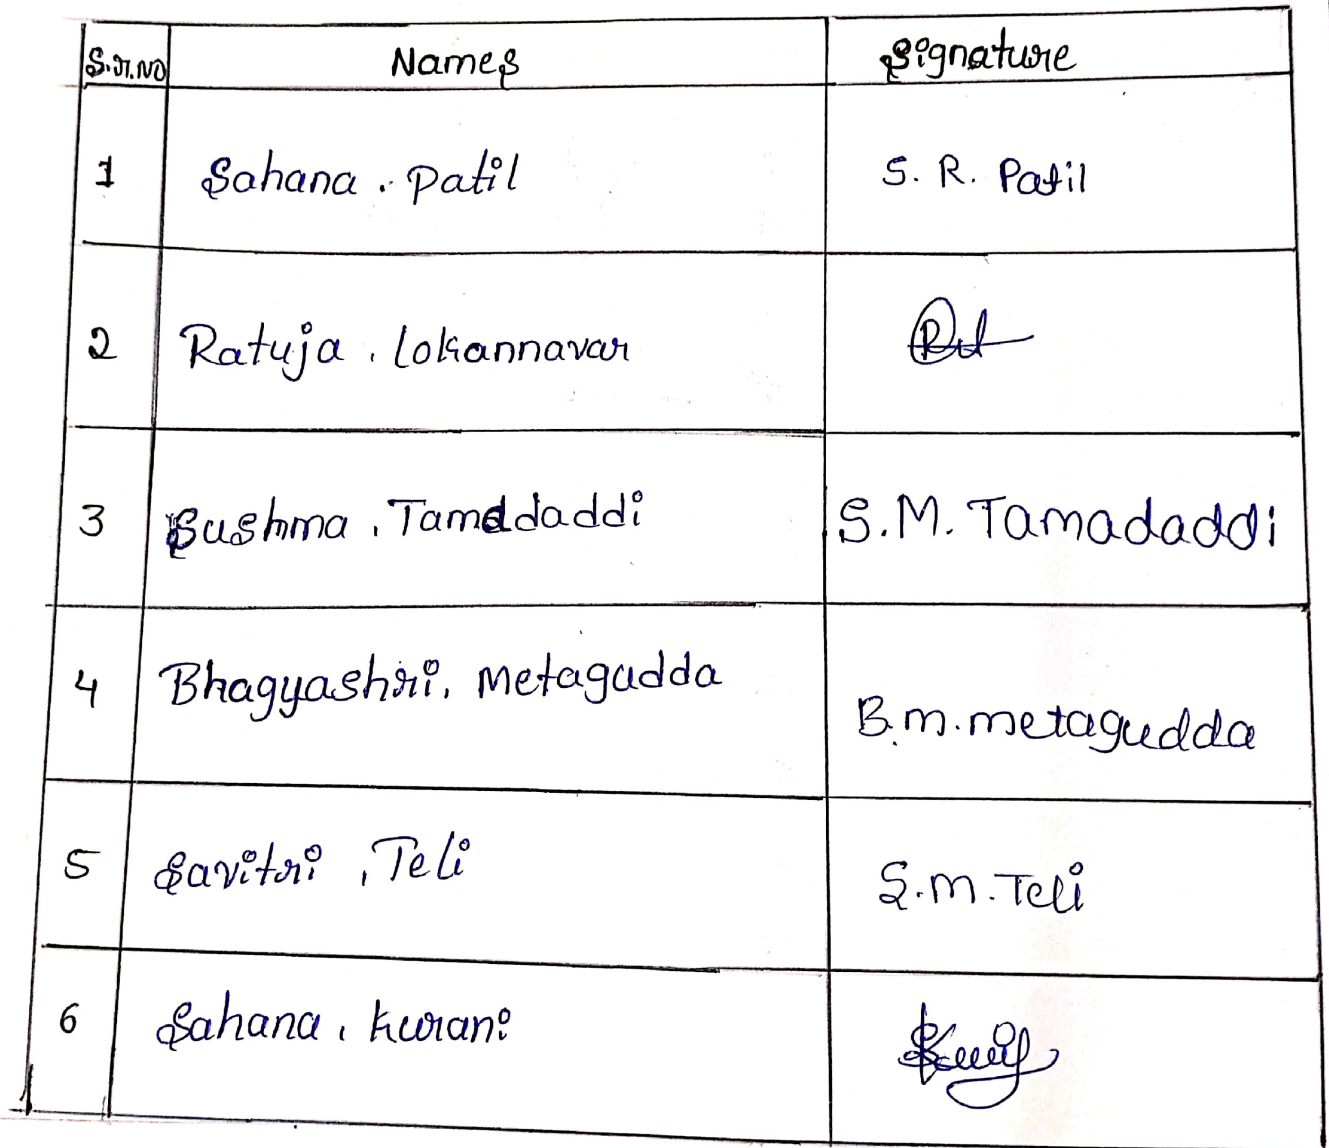 S.r.No Names Signature
1 Sahana . Patil S. R. Patil
2 Ratuja . Lokannavar
3 Sushma . Tamddaddi S.M. Tamadaddi
4 Bhagyashri. Metagudda B.m.metagudda
5 Savitri . Teli S.m.Teli
6 Sahana . Kurani